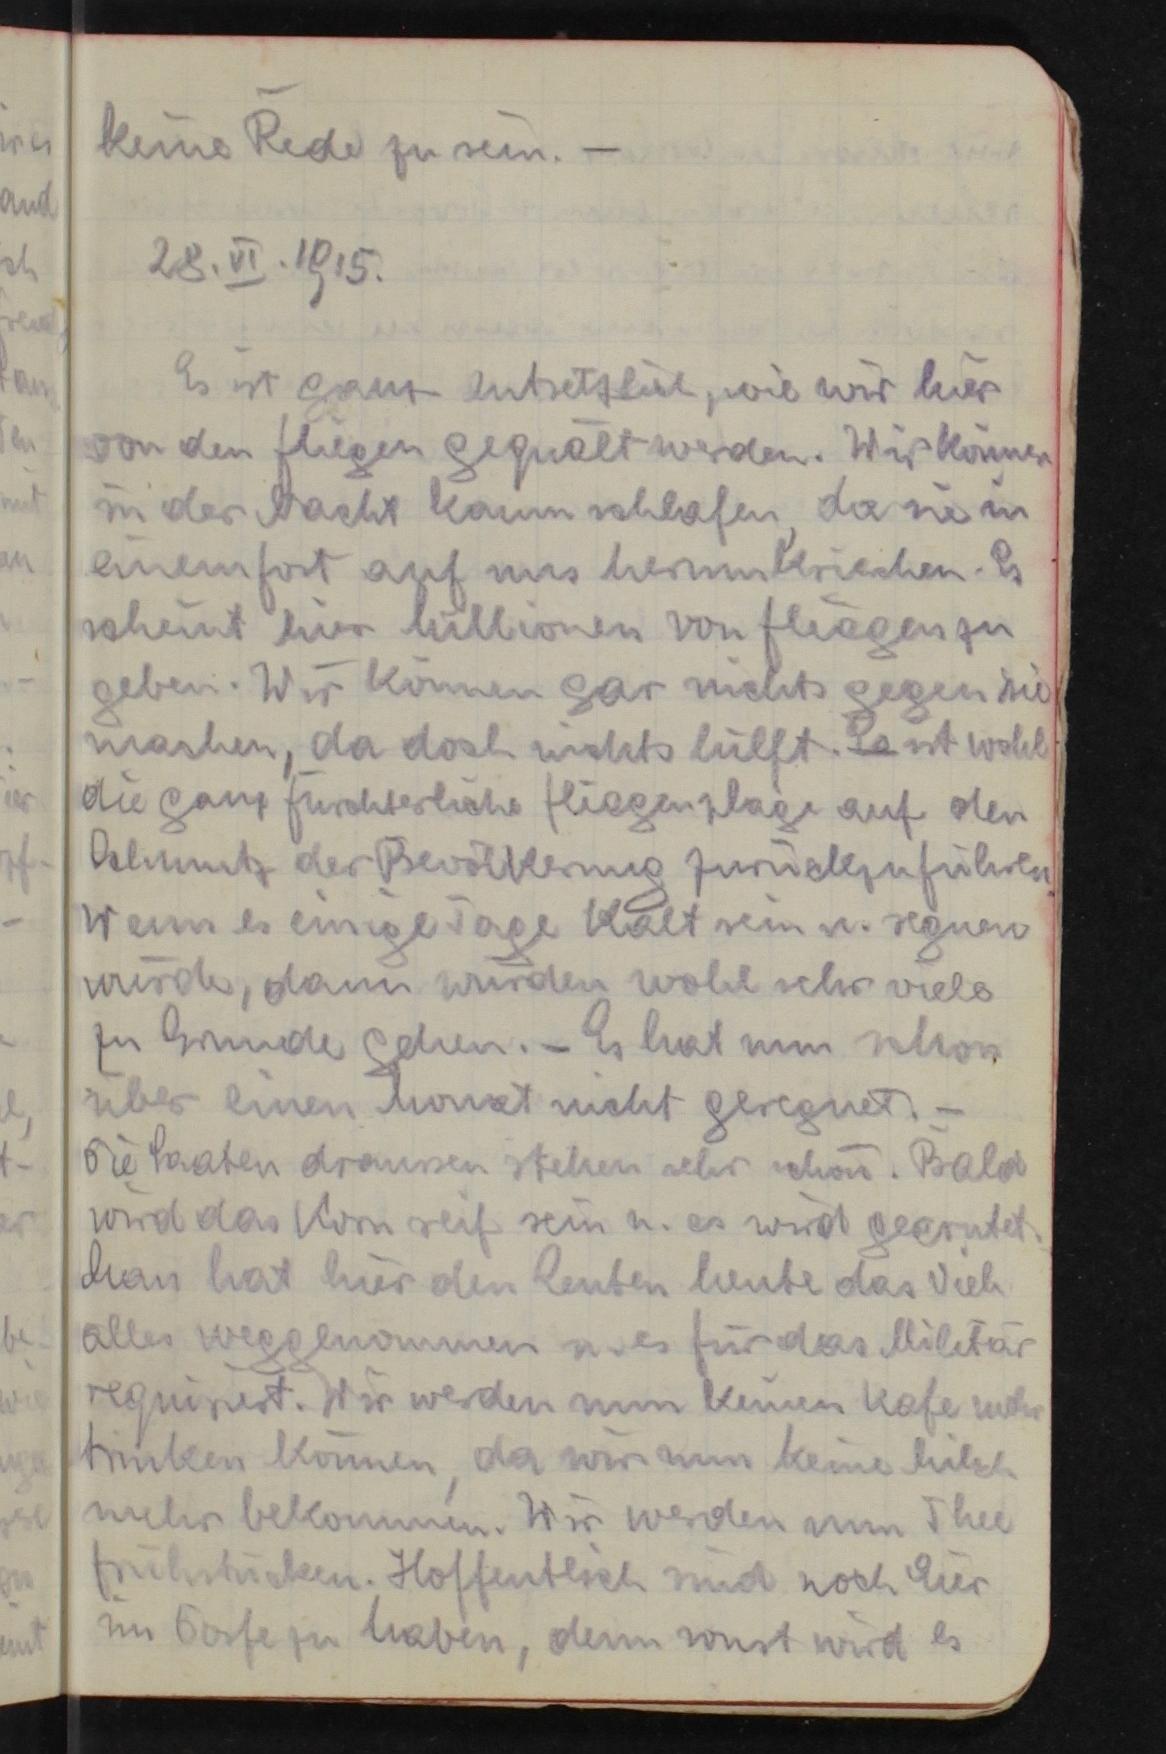 keine Rede zu sein. —
28. VI. 1915.
Es ist ganz entsetzlich, wie wir hier
von den Fliegen gequält werden. Wir können
in der Nacht kaum schlafen, da sie in
einemfort auf uns herumkriechen. Es
scheint hier Millionen von Fliegen zu
geben. Wir können gar nichts gegen sie
machen, da doch nichts hilft. Es ist wohl
die ganz fürchterliche Fliegenplage auf den
Schmutz der Bevölkerung zurückzuführen.
Wenn es einige Tage kalt sein u. regnen
würde, dann würden wohl sehr viele
zu Grunde gehen. – Es hat nun schon
über einen Monat nicht geregnet. –
Die Saaten draussen stehen sehr schön. Bald
wird das Korn reif sein u. es wird geerntet.
Man hat hier den Leuten heute das Vieh
alles weggenommen u. es für das Militär
requiriert. Wir werden nun keinen Kafe mehr
trinken können, da wir nun keine Milch
mehr bekommen. Wir werden nun Thee
frühstücken. Hoffentlich sind noch Eier
im Dorfe zu haben, denn sonst wird es